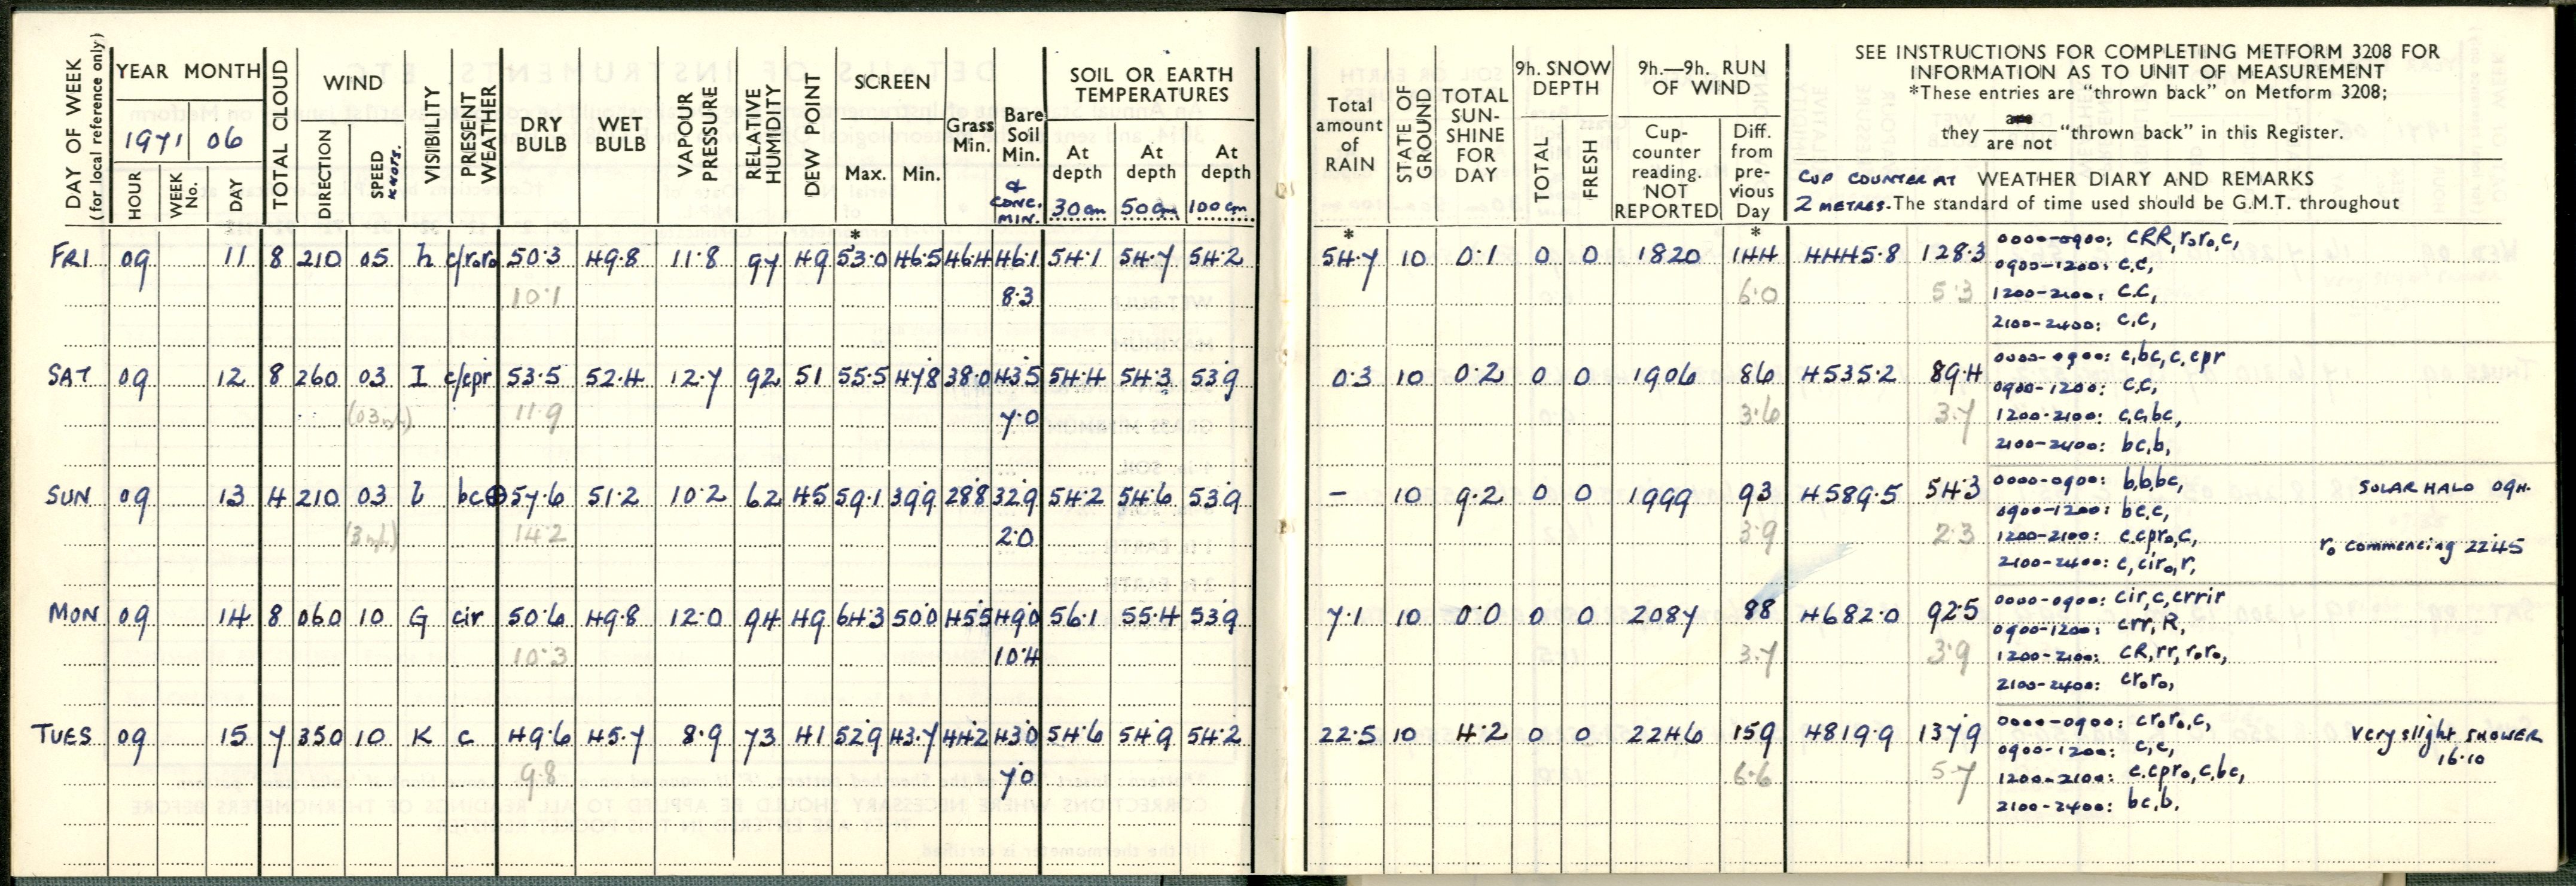 DAY OF WEEK
(for local reference only)
YEAR MONTH
1971 06
HOUR
WEEK No.
DAY
TOTAL CLOUD
WIND
DIRECTION
SPEED KNOTS.
VISIBILITY
PRESENT WEATHER
DRY BULB
WET BULB
VAPOUR PRESSURE
RELATIVE HUMIDITY
DEW POINT
SCREEN
Max.
Min.
Grass Min.
Bare Soil Min.
& CONC. MIN.
SOIL OR EARTH TEMPERATURES
At depth 30 cm
At depth 50 cm
At depth 100 cm
Total amount of RAIN
STATE OF GROUND
TOTAL SUN-SHINE FOR DAY
9h. SNOW DEPTH
TOTAL
FRESH
9h.—9h. RUN OF WIND
Cup-counter reading. NOT REPORTED
Diff. from pre-vious Day
SEE INSTRUCTIONS FOR COMPLETING METFORM 3208 FOR
INFORMATION AS TO UNIT OF MEASUREMENT
*These entries are "thrown back" on Metform 3208;
they are / are not "thrown back" in this Register.
CUP COUNTER AT WEATHER DIARY AND REMARKS
2 METRES. The standard of time used should be G.M.T. throughout
* * *
FRI 09 11 8 210 05 h c/roro 50.3 49.8 11.8 97 49 53.0 46.5 46.4 46.1 54.1 54.7 54.2 54.7 10 0.1 0 0 1820 144 4445.8 128.3 0000-0900: cRR,roro,c,
0900-1200: c,c,
10.1 8.3 6.0 5.3 1200-2100: c,c,
2100-2400: c,c,
SAT 09 12 8 260 03 I c/cpr 53.5 52.4 12.7 92 51 55.5 47.8 38.0 43.5 54.4 54.3 53.9 0.3 10 0.2 0 0 1906 86 4535.2 89.4 0000-0900: c,bc,c,cpr
0900-1200: c,c,
(03 ) 11.9 7.0 3.6 3.7 1200-2100: c,c,bc,
2100-2400: bc,b,
SUN 09 13 4 210 03 l bc⊕ 57.6 51.2 10.2 62 45 59.1 39.9 28.8 32.9 54.2 54.6 53.9 - 10 9.2 0 0 1999 93 4589.5 54.3 0000-0900: b,b,bc, SOLAR HALO 09H.
0900-1200: bc,c,
(3 ) 14.2 2.0 3.9 2.3 1200-2100: c,cpro,c, ro commencing 2245
2100-2400: c,ciro,r,
MON 09 14 8 060 10 G cir 50.6 49.8 12.0 94 49 64.3 50.0 45.5 49.0 56.1 55.4 53.9 7.1 10 0.0 0 0 2087 88 4682.0 92.5 0000-0900: cir,c,crrir
0900-1200: crr,R,
10.3 10.4 3.7 3.9 1200-2100: cR,rr,roro,
2100-2400: croro,
TUES 09 15 7 350 10 K c 49.6 45.7 8.9 73 41 52.9 43.7 44.2 43.0 54.6 54.9 54.2 22.5 10 4.2 0 0 2246 159 4819.9 137.9 0000-0900: croro,c, Very slight SHOWER
0900-1200: c,c, 16.10
9.8 7.0 6.6 5.7 1200-2100: c,cpro,c,bc,
2100-2400: bc,b,